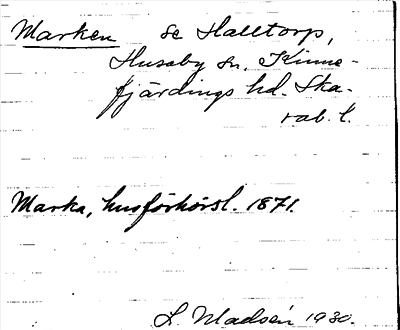 Marken se Halltorp,
Husaby sn. Kinne-
fjärdings hd. Ska-
rab. l.
Marka, husförhörsl. 1871.
L. Madsén 1930.